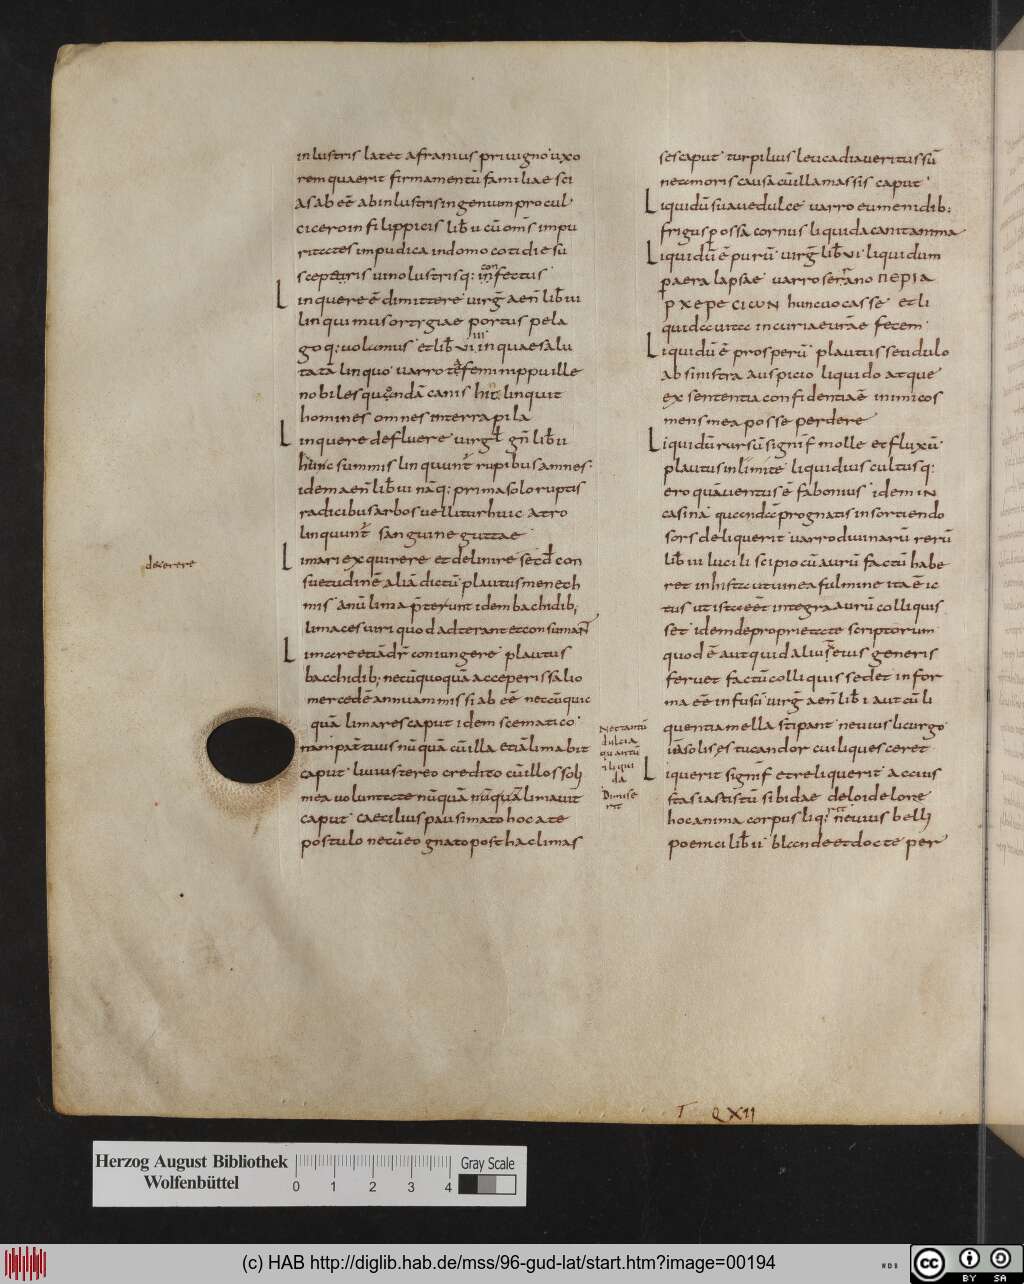 inlustris latet afranius priuigno uxo
rem quaerit firmamentū familiae sci
as ab eē abinlustris ingenium procul
cicero in filippicis lib̄ u cū om̄s impu
ritates impudica in domo cotidie su
scep&uris uinolustrisq: infectus
Linquere ē dimittere uirg̅ aen̄ lib̄ iii
linquimus ortygiae portus pela
goq: uolamus et lib̄ ui in quae salu
tatā linquo uarro
nobiles quondā canis hic linquit
homines omnes interra pila
Linquere defluere uirgł gn̄ lib̄ ii
hunc summis linquunt̄ rupibus amnes:
idem aen̄ lib̄ iii nāq: prima solo ruptis
radicibus arbos uellitur huic atro
linquunt̄ sanguine guttae
Limari exquirere et delinire secd̄ con
suetudinē aliā dictū plautus menech
mis anū lima p̄terunt idem bachidib;
decerere
limaces uiri quod adterant et consumaÑ
Limare etiā dr̄ coniungere plautus
bacchidib; necūquoquā acceperis salio
mercedē annuam missi ab eē necūquic
quā limares caput idem scematico
nam pater tuus nūquā cū illa etiā limabit
caput liuius tereo credito cū illos soli
mea uoluntate nūquā nūquā limauit
caput caecilius pausimato hoc a te
postulo necū eo gnato posthac limas
ses caput turpilius leucadia ueritus sū
ne amoris causa cū illa massis caput
Liquidū suaue dulce uarro eumenidib:
frigus possā cornus liquida canitamma
Liquidū ē purū uirg̅ lib̄ ui liquidum
paera lapsae uarro serrano ΠΕΡΙΑ
ΡΧΕΡΕCΙCΙΟΝ hunc uocasse et li
quida uita in curia eurāe fecem
Liquidū ē prosperū plautus seudulo
ab sinistra auspicio liquido atque
ex sententia confidentiaē inimicos
mens mea posse perdere
Liquidū rursū signif̄ molle et fluxū
plautus in limite liquidius cultusq:
ero quā uentus ē fabonius idem in
casina quaendā prognatis insortiendo
sors deliquerit uarro diuinarū rerū
lib̄ iii lucili scipio cū aurū factū habe
ret inhista ut unea fulmine ita ē ic
tus ut ista eēt integra aurū colliquis
set idem de proprietate scriptorum
quod ē aut quid aliut eius generis
feruet factū colliquisset et in for
ma eē infusū uirg̅ aen̄ lib̄ i aut cū li
quentia mella stipant neuius licurgo
iā solis estuc andor cui liquesceret
Nec tantū
dulcia
quantū
& liqui
da
Liquerit signif̄ et reliquerit accius
Dimise
rit
stasiastis tū sibi dae deloi de lore
hoc anima corpus liq: neuius belli
poeni ci lib̄ ii blande et docte per
T Q XII
Herzog August Bibliothek
Wolfenbüttel
0 1 2 3 4
Gray Scale
(c) HAB http://diglib.hab.de/mss/96-gud-lat/start.htm?image=00194
WDB
cc BY SA